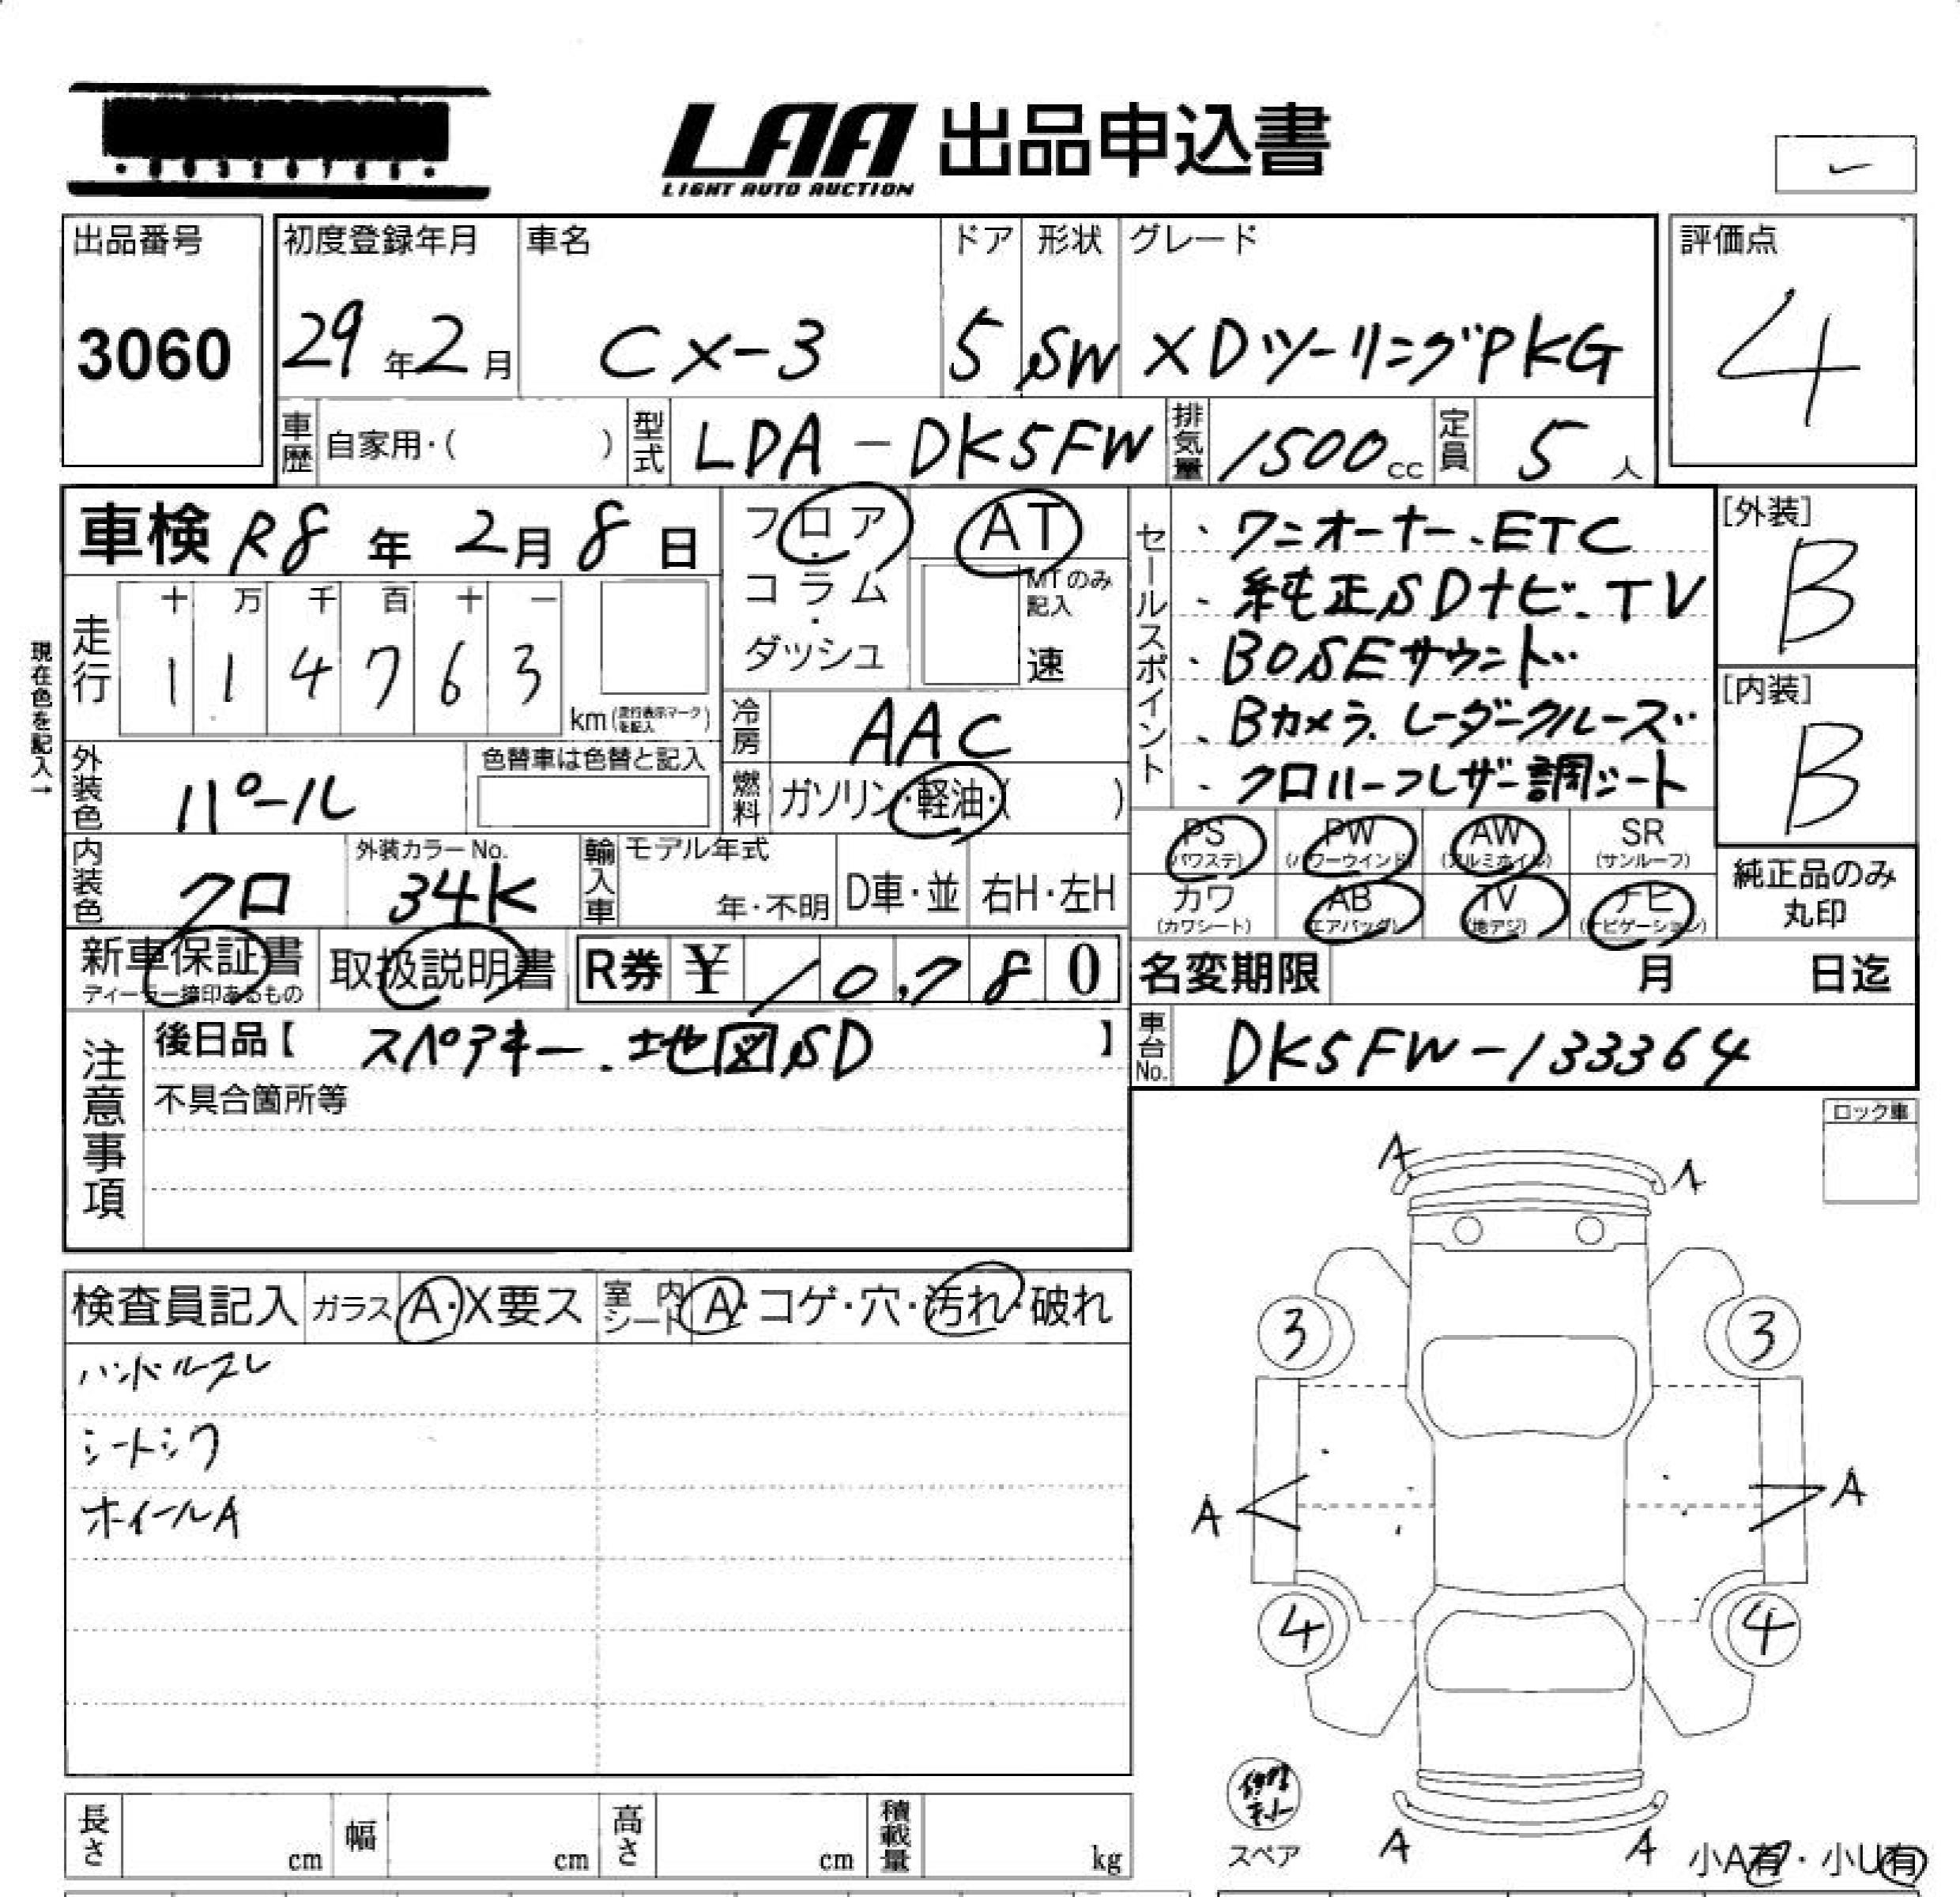 LAA 出品申込書
LIGHT AUTO AUCTION
出品番号
3060
初度登録年月
29年2月
車名
CX-3
ドア
5
形状
SW
グレード
XDツーリングPKG
評価点
4
車歴 自家用・( )
型式 LDA-DK5FW
排気量 1500cc
定員 5人
車検 R8年2月8日
フロア・コラム・ダッシュ
AT
MTのみ記入
速
セールスポイント
・ワンオーナー、ETC
・純正SDナビ、TV
・BOSEサウンド
・Bカメラ、レーダークルーズ
・クロハーフレザー調シート
[外装]
B
[内装]
B
現在色を記入→
走行
十 万 千 百 十 一
1 1 4 7 6 3
km(走行表示マークを記入)
冷房 AAC
外装色 パール
色替車は色替と記入
燃料 ガソリン・軽油・( )
PS (パワステ)
PW (パワーウインド)
AW (アルミホイル)
SR (サンルーフ)
カワ (カワシート)
AB (エアバッグ)
TV (地デジ)
ナビ (ナビゲーション)
純正品のみ丸印
内装色 クロ
外装カラーNo. 34K
輸入車 モデル年式 年・不明
D車・並
右H・左H
新車保証書
ディーラー捺印あるもの
取扱説明書
R券 ¥ 10,780
名変期限 月 日迄
注意事項
後日品【 スペアキー、地図SD 】
不具合箇所等
車台No. DK5FW-133364
ロック車
検査員記入
ガラス A・X要ス
室内シート A・コゲ・穴・汚れ・破れ
ハンドルスレ
シートシワ
ホイールA
A A
3 3
A A
4 4
スペア
A A
小A有・小U有
長さ cm
幅 cm
高さ cm
積載量 kg